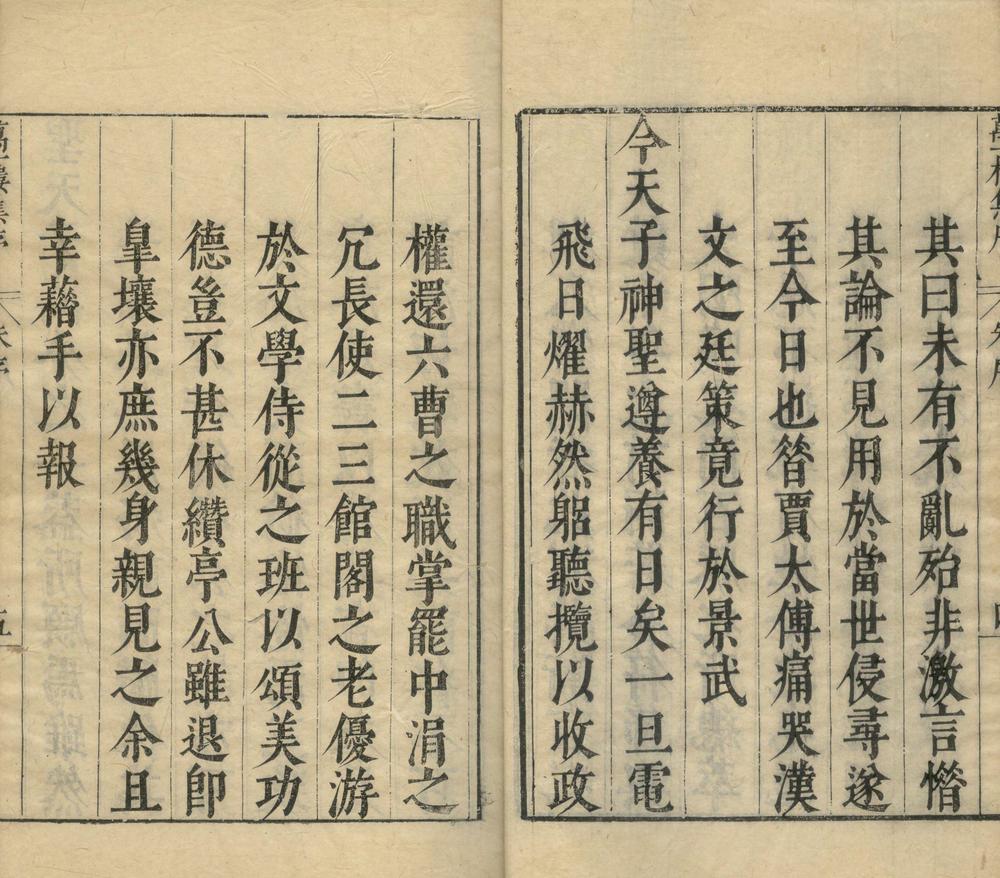 其曰未有不亂殆非激言惜
其論不見用於當世侵尋遂
至今日也昝賈太傅痛哭漢
文之廷策竟行於景武
今天子神聖遵養有日矣一旦電
飛日燿赫然躬聽攬以收政
權還六曹之職掌罷中涓之
冗長使二三館閣之老優游
於文學侍從之班以頌美功
德豈不甚休纘亭公雖退卽
皐壤亦庶幾身親見之余且
幸藉手以報